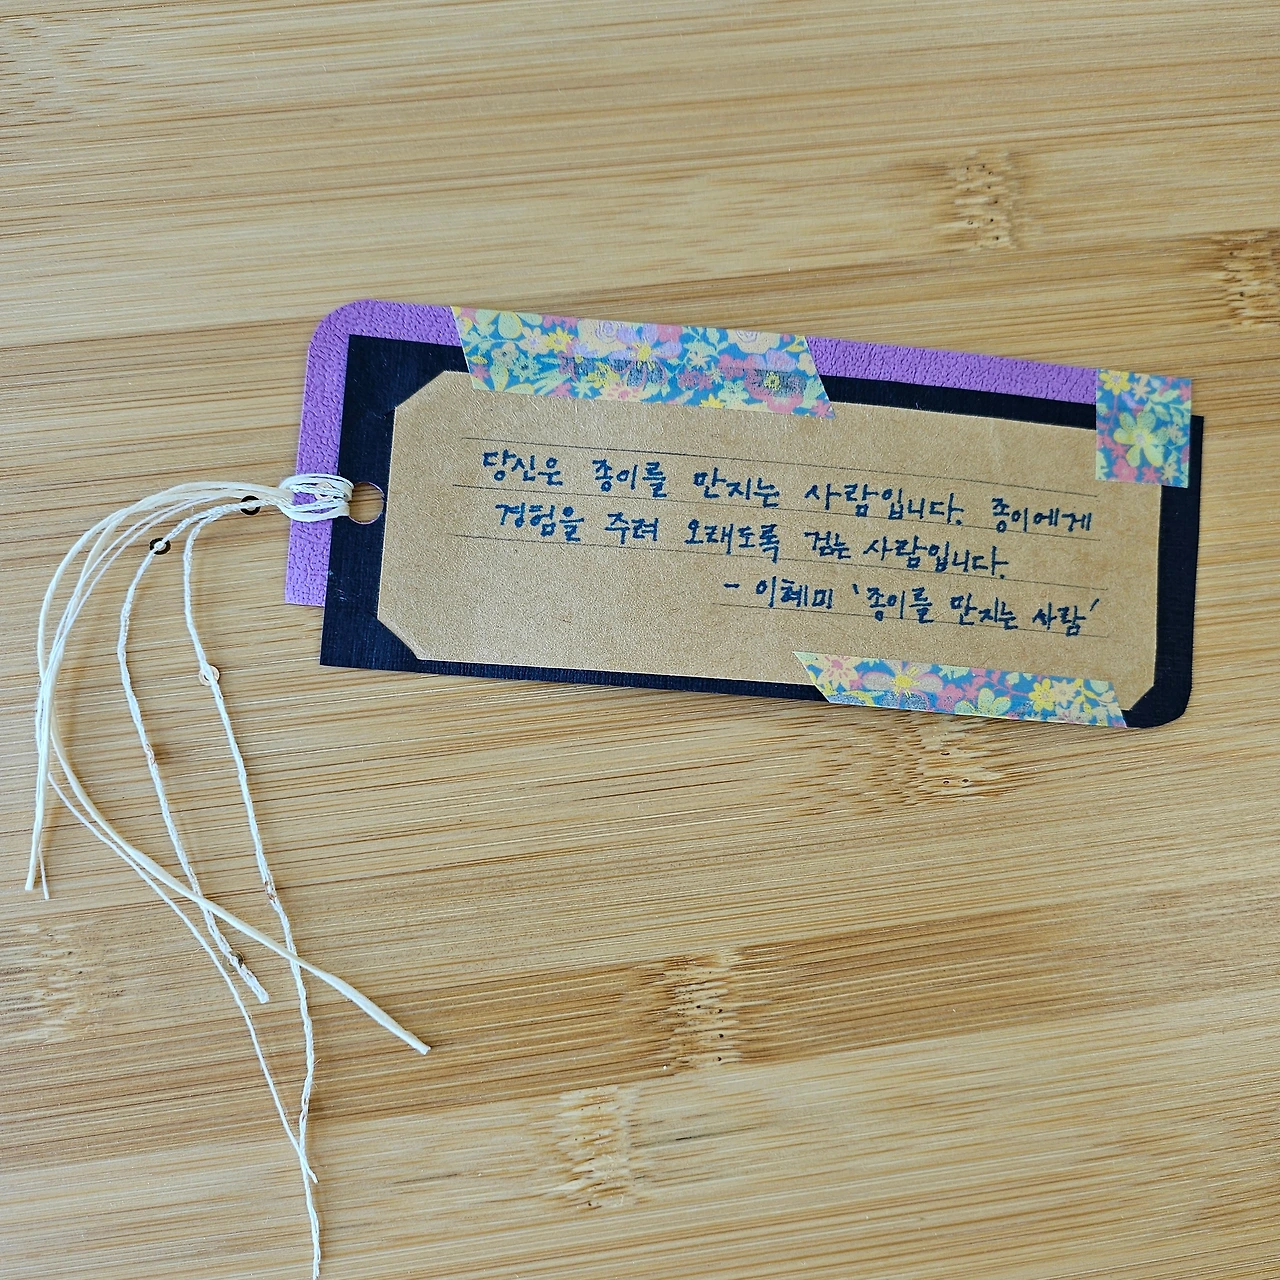 당신은 종이를 만지는 사람입니다. 종이에게
경험을 주려 오래도록 접는 사람입니다.
- 이혜미 '종이를 만지는 사람'